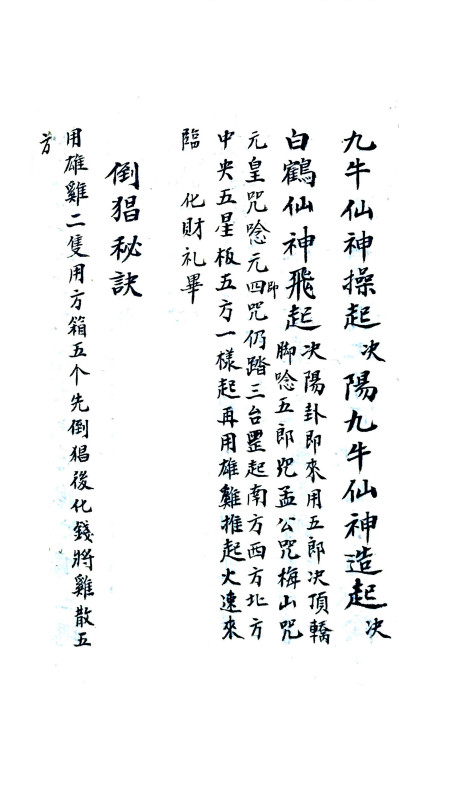 九牛仙神操起决陽九牛仙神造起决
白鶴仙神飛起决陽卦即來用五郎决頂轎
脚唸五郎咒孟公咒梅山咒
元皇咒唸元四郎咒仍踏三台罡起南方西方北方
中央五星板五方一樣起再用雄雞推起火速來
臨 化财礼畢
倒猖秘訣
用雄雞二隻用方箱五个先倒猖後化錢將雞散五
方